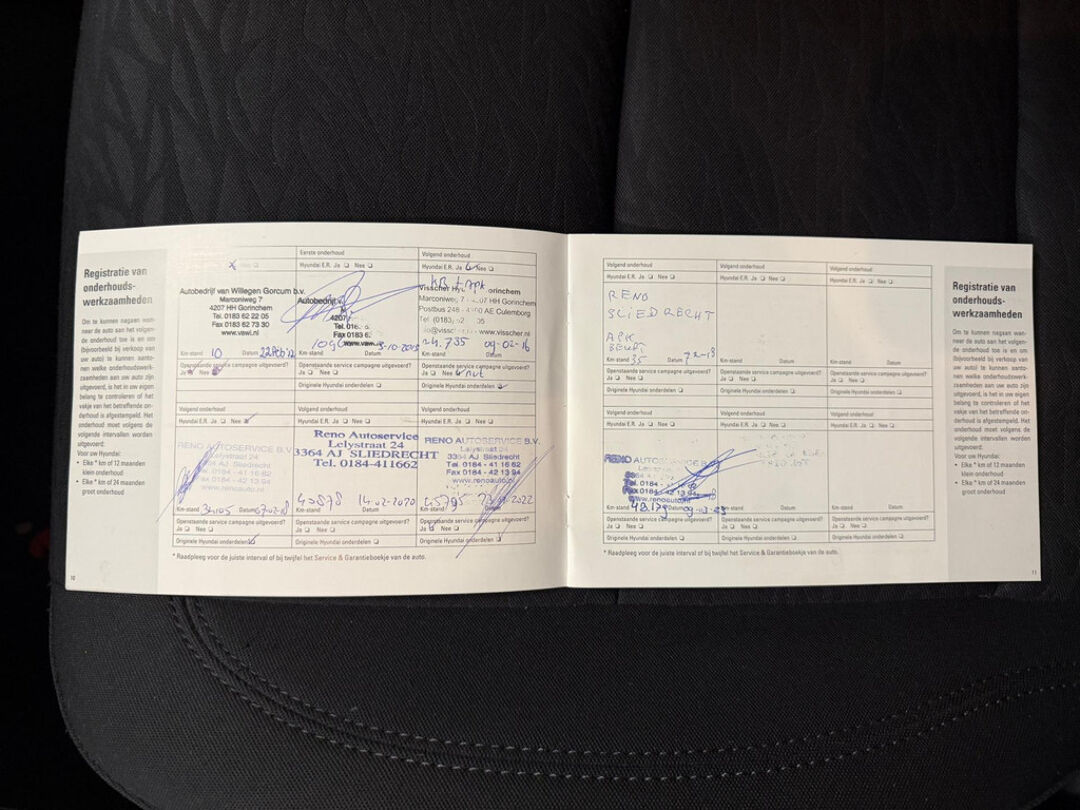 Registratie van
onderhouds-
werkzaamheden
Om te kunnen nagaan wan-
neer de auto het volgen-
de onderhoud toe is en om
(bijvoorbeeld bij verkoop van
uw auto) te kunnen aanto-
nen welke onderhoudswerk-
zaamheden aan uw auto zijn
uitgevoerd, is het in uw eigen
belang te controleren of het
vakje van het betreffende on-
derhoud is afgestempeld. Het
onderhoud moet volgens de
volgende intervallen worden
uitgevoerd:
Voor uw Hyundai:
• Elke * km of 12 maanden
klein onderhoud
• Elke * km of 24 maanden
groot onderhoud
10
Nee
Autobedrijf van Willegen Gorcum b.v.
Marconiweg 7
4207 HH Gorinchem
Tel. 0183 62 22 05
Fax 0183 62 73 30
www.vawi.nl
Km-stand 10 Datum 22 feb '12
Openstaande service campagne uitgevoerd?
Ja Nee
Eerste onderhoud
Hyundai E.R. Ja Nee
Autobedrijf
4207
Tel. 0183
Fax 0183 6
www.vawi
Km-stand Datum
Openstaande service campagne uitgevoerd?
Ja Nee
Originele Hyundai onderdelen
Volgend onderhoud
Hyundai E.R. Ja Nee
KB + APK
Visscher orinchem
Marconiweg 7 - 4207 HH Gorinchem
Postbus 248 - AE Culemborg
Tel (0183)
www.visscher.nl
24.735 09-02-16
Km-stand Datum
Openstaande service campagne uitgevoerd?
Ja Nee
Originele Hyundai onderdelen
Volgend onderhoud
Hyundai E.R. Ja Nee
RENO AUTOSERVICE B.V.
Lelystraat 24
0184 - 41 16 62
0184 - 42 13 94
www.renoauto.nl
Km-stand 34105 Datum 07-02-18
Openstaande service campagne uitgevoerd?
Ja Nee
Originele Hyundai onderdelen
Volgend onderhoud
Hyundai E.R. Ja Nee
Reno Autoservice
Lelystraat 24
3364 AJ SLIEDRECHT
Tel. 0184-411662
40878 14-02-2020
Km-stand Datum
Openstaande service campagne uitgevoerd?
Ja Nee
Originele Hyundai onderdelen
Volgend onderhoud
Hyundai E.R. Ja Nee
RENO AUTOSERVICE B.V.
Lelystraat 24
3364 AJ Sliedrecht
Tel. 0184 - 41 16 62
Fax 0184 - 42 13 94
www.renoauto.nl
45795 2022
Km-stand Datum
Openstaande service campagne uitgevoerd?
Ja Nee
Originele Hyundai onderdelen
* Raadpleeg voor de juiste interval of bij twijfel het Service & Garantieboekje van de auto.
Volgend onderhoud
Hyundai E.R. Ja Nee
RENO
SLIEDRECHT
APK
BEURT
Km-stand 35 Datum
Openstaande service campagne uitgevoerd?
Ja Nee
Originele Hyundai onderdelen
Volgend onderhoud
Hyundai E.R. Ja Nee
Km-stand Datum
Openstaande service campagne uitgevoerd?
Ja Nee
Originele Hyundai onderdelen
Volgend onderhoud
Hyundai E.R. Ja Nee
Km-stand Datum
Openstaande service campagne uitgevoerd?
Ja Nee
Originele Hyundai onderdelen
Volgend onderhoud
Hyundai E.R. Ja Nee
RENO AUTOSERVICE B.V.
Lelystraat
Tel. 0184 -
Fax 0184 - 42 13 94
www.renoauto.nl
Km-stand 48179 Datum 09-03-23
Openstaande service campagne uitgevoerd?
Ja Nee
Originele Hyundai onderdelen
Volgend onderhoud
Hyundai E.R. Ja Nee
Km-stand Datum
Openstaande service campagne uitgevoerd?
Ja Nee
Originele Hyundai onderdelen
Volgend onderhoud
Hyundai E.R. Ja Nee
Km-stand Datum
Openstaande service campagne uitgevoerd?
Ja Nee
Originele Hyundai onderdelen
* Raadpleeg voor de juiste interval of bij twijfel het Service & Garantieboekje van de auto.
Registratie van
onderhouds-
werkzaamheden
Om te kunnen nagaan wan-
neer de auto het volgen-
de onderhoud toe is en om
(bijvoorbeeld bij verkoop van
uw auto) te kunnen aanto-
nen welke onderhoudswerk-
zaamheden aan uw auto zijn
uitgevoerd, is het in uw eigen
belang te controleren of het
vakje van het betreffende on-
derhoud is afgestempeld. Het
onderhoud moet volgens de
volgende intervallen worden
uitgevoerd:
Voor uw Hyundai:
• Elke * km of 12 maanden
klein onderhoud
• Elke * km of 24 maanden
groot onderhoud
11